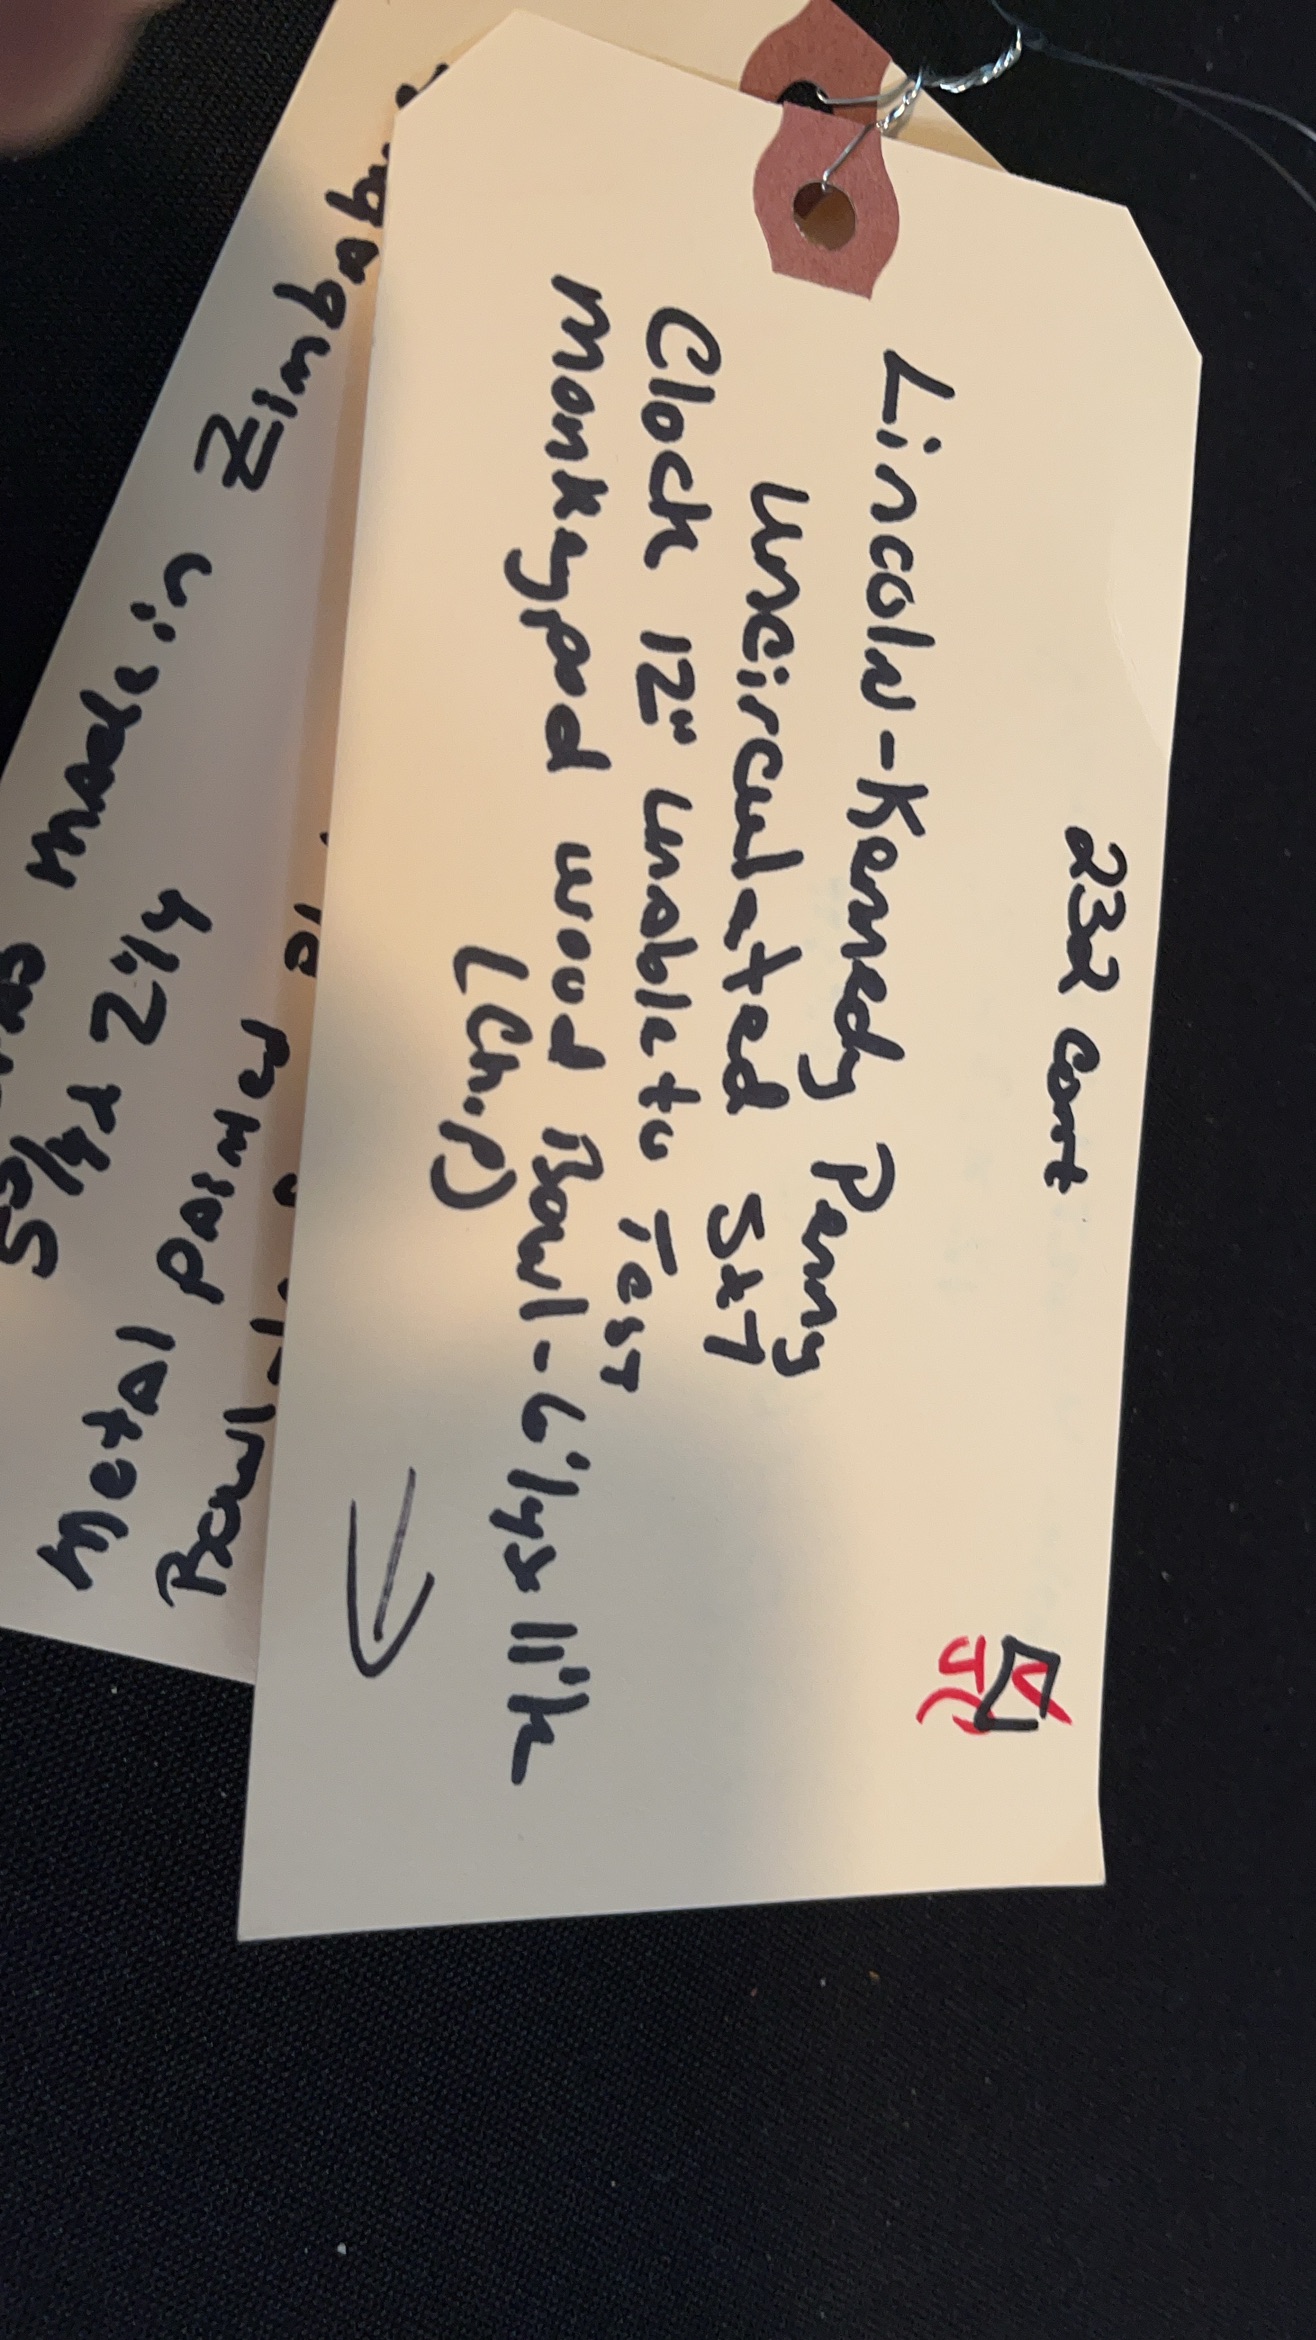 232 Cart
Lincoln-Kennedy Penny
uncirculated 5x7
Clock 12" unable to Test
monkeypod wood Bowl-6¼x11½
(Chip)
JC
made in Zimbabw
5¾x2¼
Metal painted
Bowl